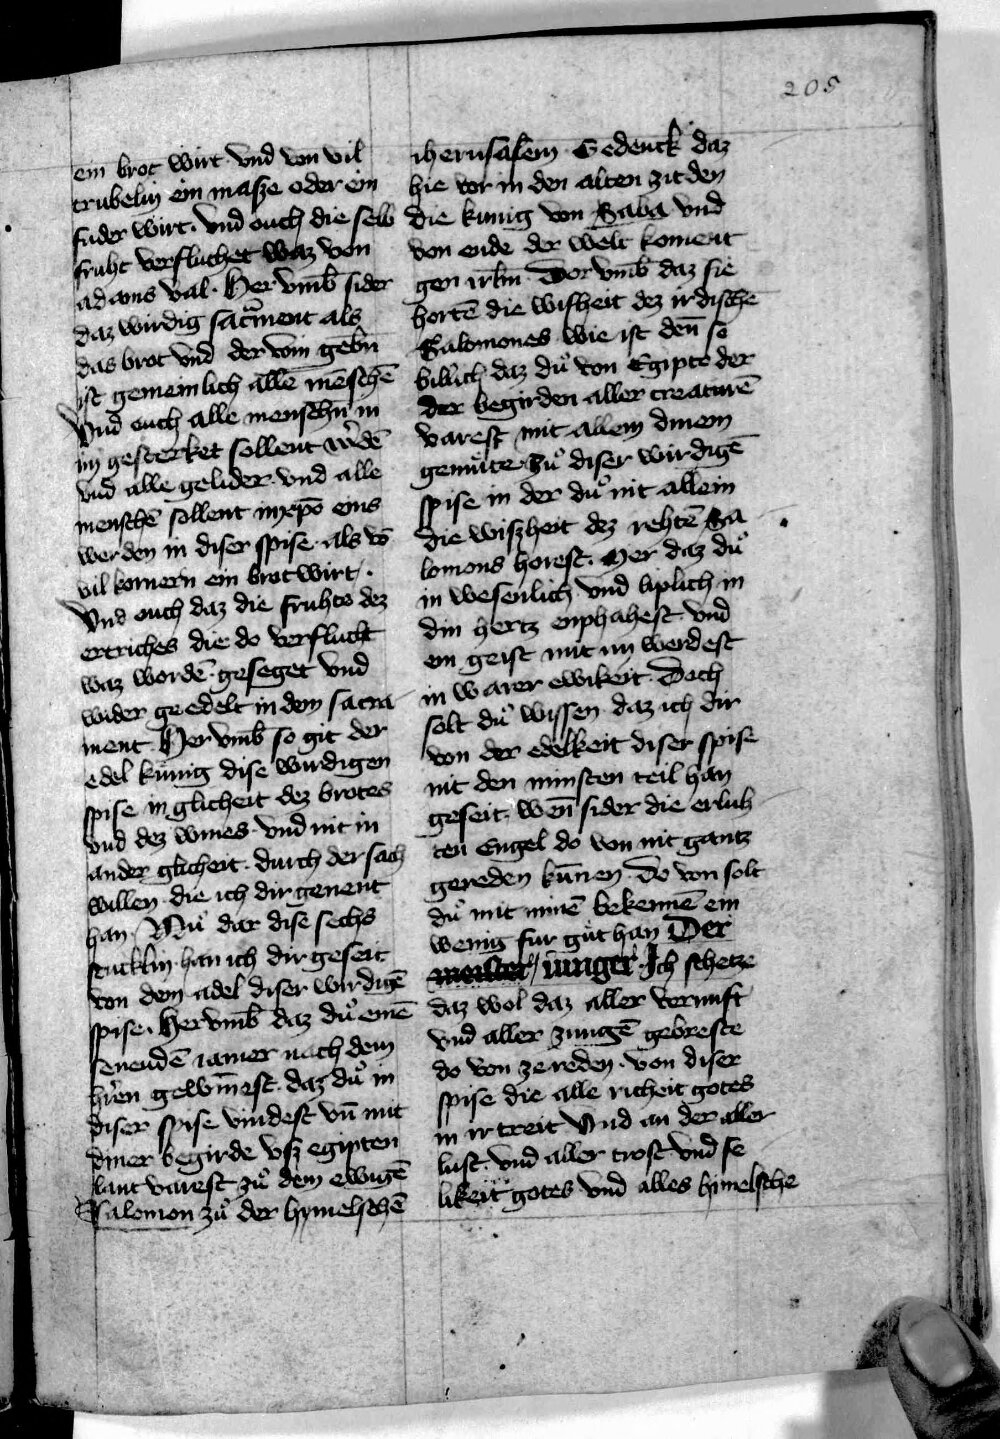 205
ein brot wirt vnd von vil
trubelin ein masze oder ein
fuder wirt · vnd ouch die selb
fruht verfluchet waz von
adams val · Her vmb sider
daz wirdig sacrment als
das brot vnd der win gebn
ist gemeinlich allē mēschē
Vnd ouch alle menschn in
im gesterket sollent wdē
vnd alle gelider · vnd alle
menschē sollent in xpō eins
werden in diser spise · als vō
vil kornern ein brot wirt ·
Vnd ouch daz die fruhte dez
ertriches die do verflucht
waz wordē · geseget vnd
wider geedelt in dem sacra
ment Her vmb so git der
edel kúnig dise wirdigen
spise in glicheit dez brotes
vnd dez wines · vnd nit in
ander glicheit · durch der sach
willen · die ich dir genent
han · Nuͦ dar dise sechs
stucklin han ich dir geseit
von dem adel diser wirdigē
spise · Her vmb daz duͦ einē
senendē iamer nach dem
hren gewinnest · daz duͦ in
diser spise vindest vn̄ mit
diner begirde vsz egipten
lant varest zuͦ dem ewigē
Salomon zuͦ der hymelschē
iherusalem · Gedenck daz
hie vor in den alten ziten
die kunig von Saba vnd
von ende der welt koment
gen irlm · Dor vmb daz sie
hortē die wisheit dez irdischē
Salomones wie ist den̄ so
billich daz duͦ von Egipto der
der begirden aller creaturē
varest mit allem dinem
gemüte zuͦ diser wirdigē
spise in der duͦ nit allein
die wiszheit dez rehtē Sa
lomons horest · Mer daz duͦ
in wesenlich vnd liplich in
din hertz enphahest vnd
ein geist mit im werdest
in warer ewikeit · Doch
solt duͦ wissen daz ich dir
von der edelkeit diser spise
nit den minsten teil han
geseit · wen̄ sider die erluh
ten Engel do von nit gantz
gereden kun̄en · Do von solt
duͦ mit minē bekennē ein
wenig fur guͦt han Der
meister / iunger · Ich schetze
daz wol daz aller vernuft
vnd aller zungē gebreste
do von ze reden · von diser
spise die alle richeit gotes
in ir treit Vnd an der aller
lust · vnd aller trost vnd se
likeit gotes vnd alles himelsche